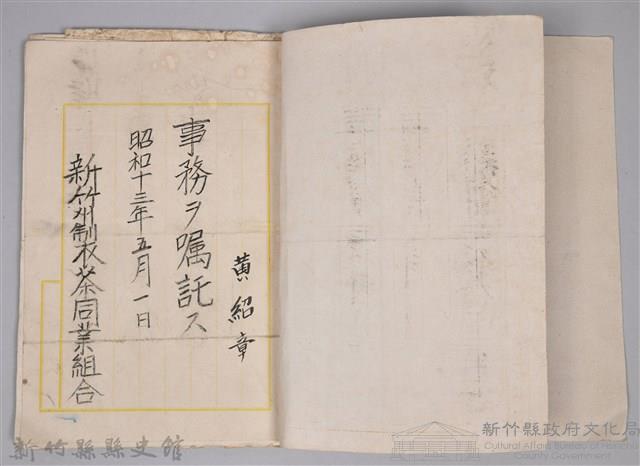 黄紹章
事務ヲ嘱託ス
昭和十三年五月一日
新竹州製茶同業組合
新竹縣縣史館
新竹縣政府文化局
Cultural Affairs Bureau of Hsinchu
County Government